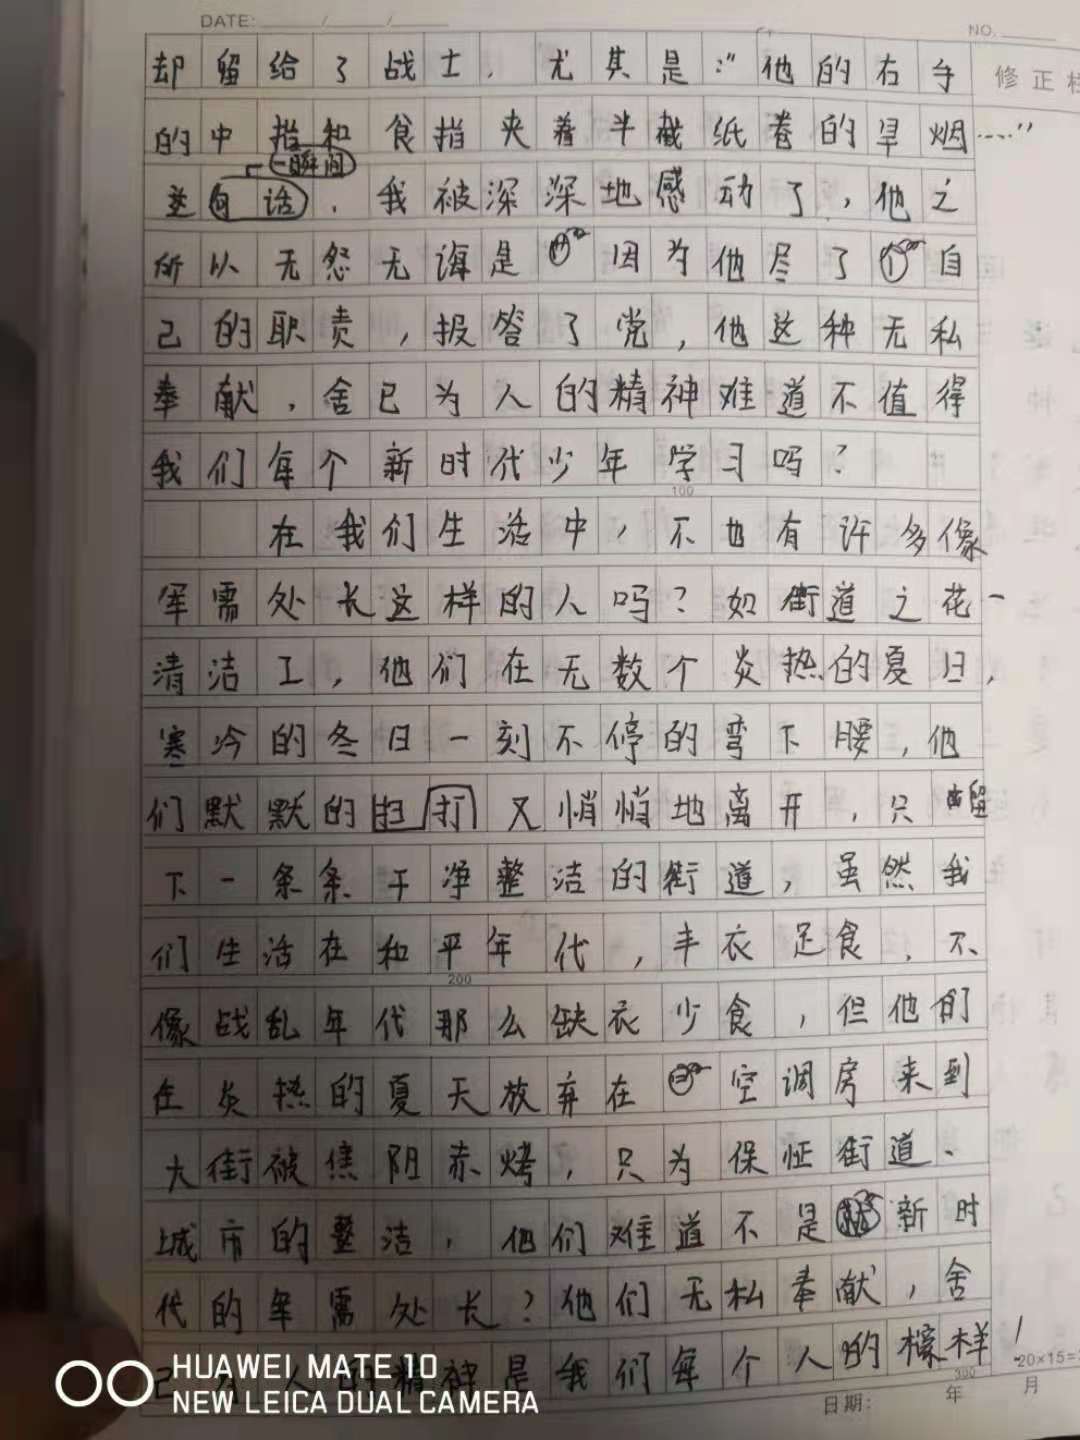 DATE: / /
NO.
却留给了战士，尤其是："他的右手
修正栏
的中指和食指夹着半截纸卷的旱烟……"
一瞬间
这句话，我被深深地感动了，他之
所以无怨无诲是因为他尽了自
己的职责，报答了党，他这种无私
奉献，舍已为人的精神难道不值得
我们每个新时代少年学习吗？
100
在我们生活中，不也有许多像
军需处长这样的人吗？如街道之花一
清洁工，他们在无数个炎热的夏日，
寒冷的冬日一刻不停的弯下腰，他
们默默的扫打又悄悄地离开，只留
下一条条干净整洁的街道，虽然我
们生活在和平年代，丰衣足食，不
200
像战乱年代那么缺衣少食，但他们
在炎热的夏天放弃在空调房来到
大街被焦阳赤烤，只为保证街道、
城市的整洁，他们难道不是新时
代的军需处长？他们无私奉献，舍
己为人的精神是我们每个人的榜样！
300
20×15=
日期： 年 月
HUAWEI MATE 10
NEW LEICA DUAL CAMERA